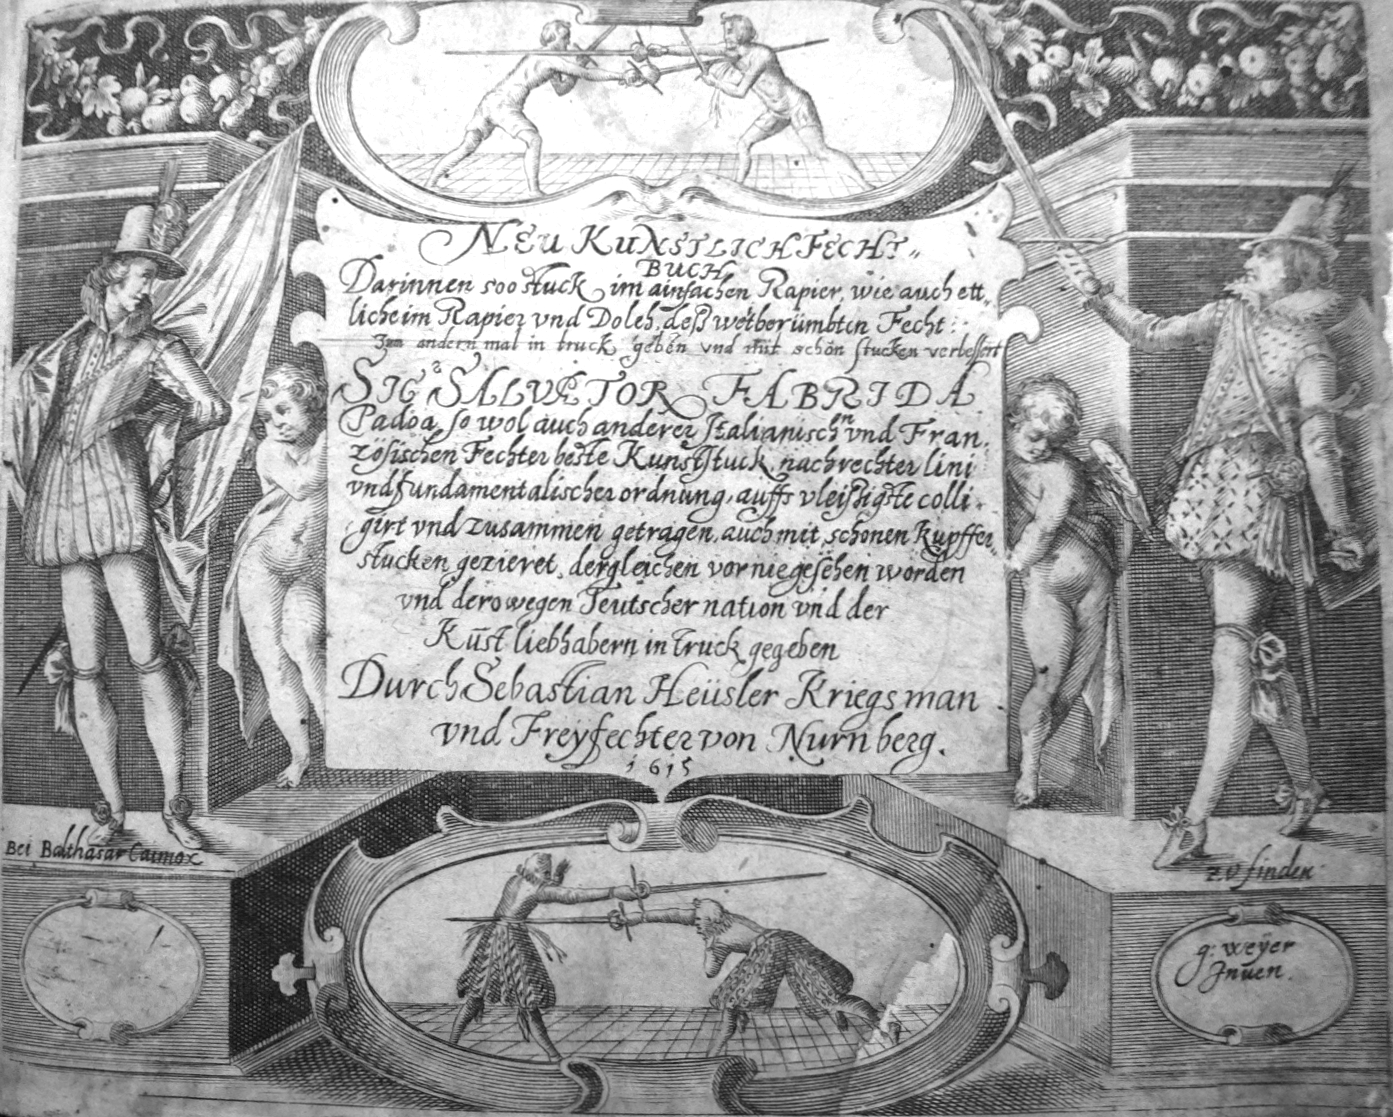 NEU KUNSTLICH FECHT„
BUCH
Darinnen 500 stuck im ainfachen Rapier, wie auch ett„
liche im Rapier vnd Dolch, deß weitberümbten Fecht:
Zum andern mal in truck geben vnd mit schön stucken verbessert
SIG.r SALVATOR FABRI DA
Padoa, so wol auch anderer Italianischn vnd Fran.
zösischen Fechter beste Kunststuck, nach rechter lini
vnd fundamentalischer ordnung, auffs vleißigste colli.
girt vnd zusammen getragen, auch mit schönen kupffer
stucken gezieret, dergleichen vor nie gesehen worden
vnd derowegen Teutscher nation vnd der
Kūst liebhabern in truck gegeben
Durch Sebastian Heüsler Kriegsman
vnd Freyfechter von Nurnberg.
1615
Bei Balthasar Caimox
z. v finden
g: weÿer
Jnuen.